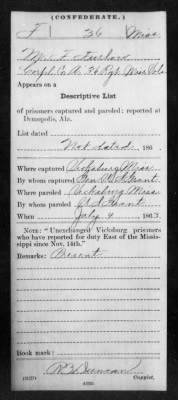 (CONFEDERATE.)
F 36 Miss.
Corpl. Co. A. 36 Regt.
Appears on a
Descriptive List
of prisoners captured and paroled; reported at
Demopolis, Ala.
List dated
Not dated, 186 .
Where captured Vicksburg Miss.
By whom captured Gen U S Grant
Where paroled Vicksburg Miss.
By whom paroled U S Grant
When July 4 1863.
NOTE: "Unexchanged Vicksburg prisoners
who have reported for duty East of the Missis-
sippi since Nov. 14th."
Remarks: Present
Book mark:
Duncan
Copyist.